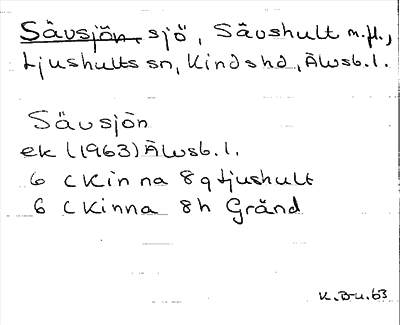 Sävsjön, sjö, Sävshult m.fl.,
Ljushults sn, Kinds hd, Älvsb. l.
Sävsjön
ek l (1963) Älvsb. l.
6 C Kinna 8g Ljushult
6 C Kinna 8h Gränd
K.B-u.63